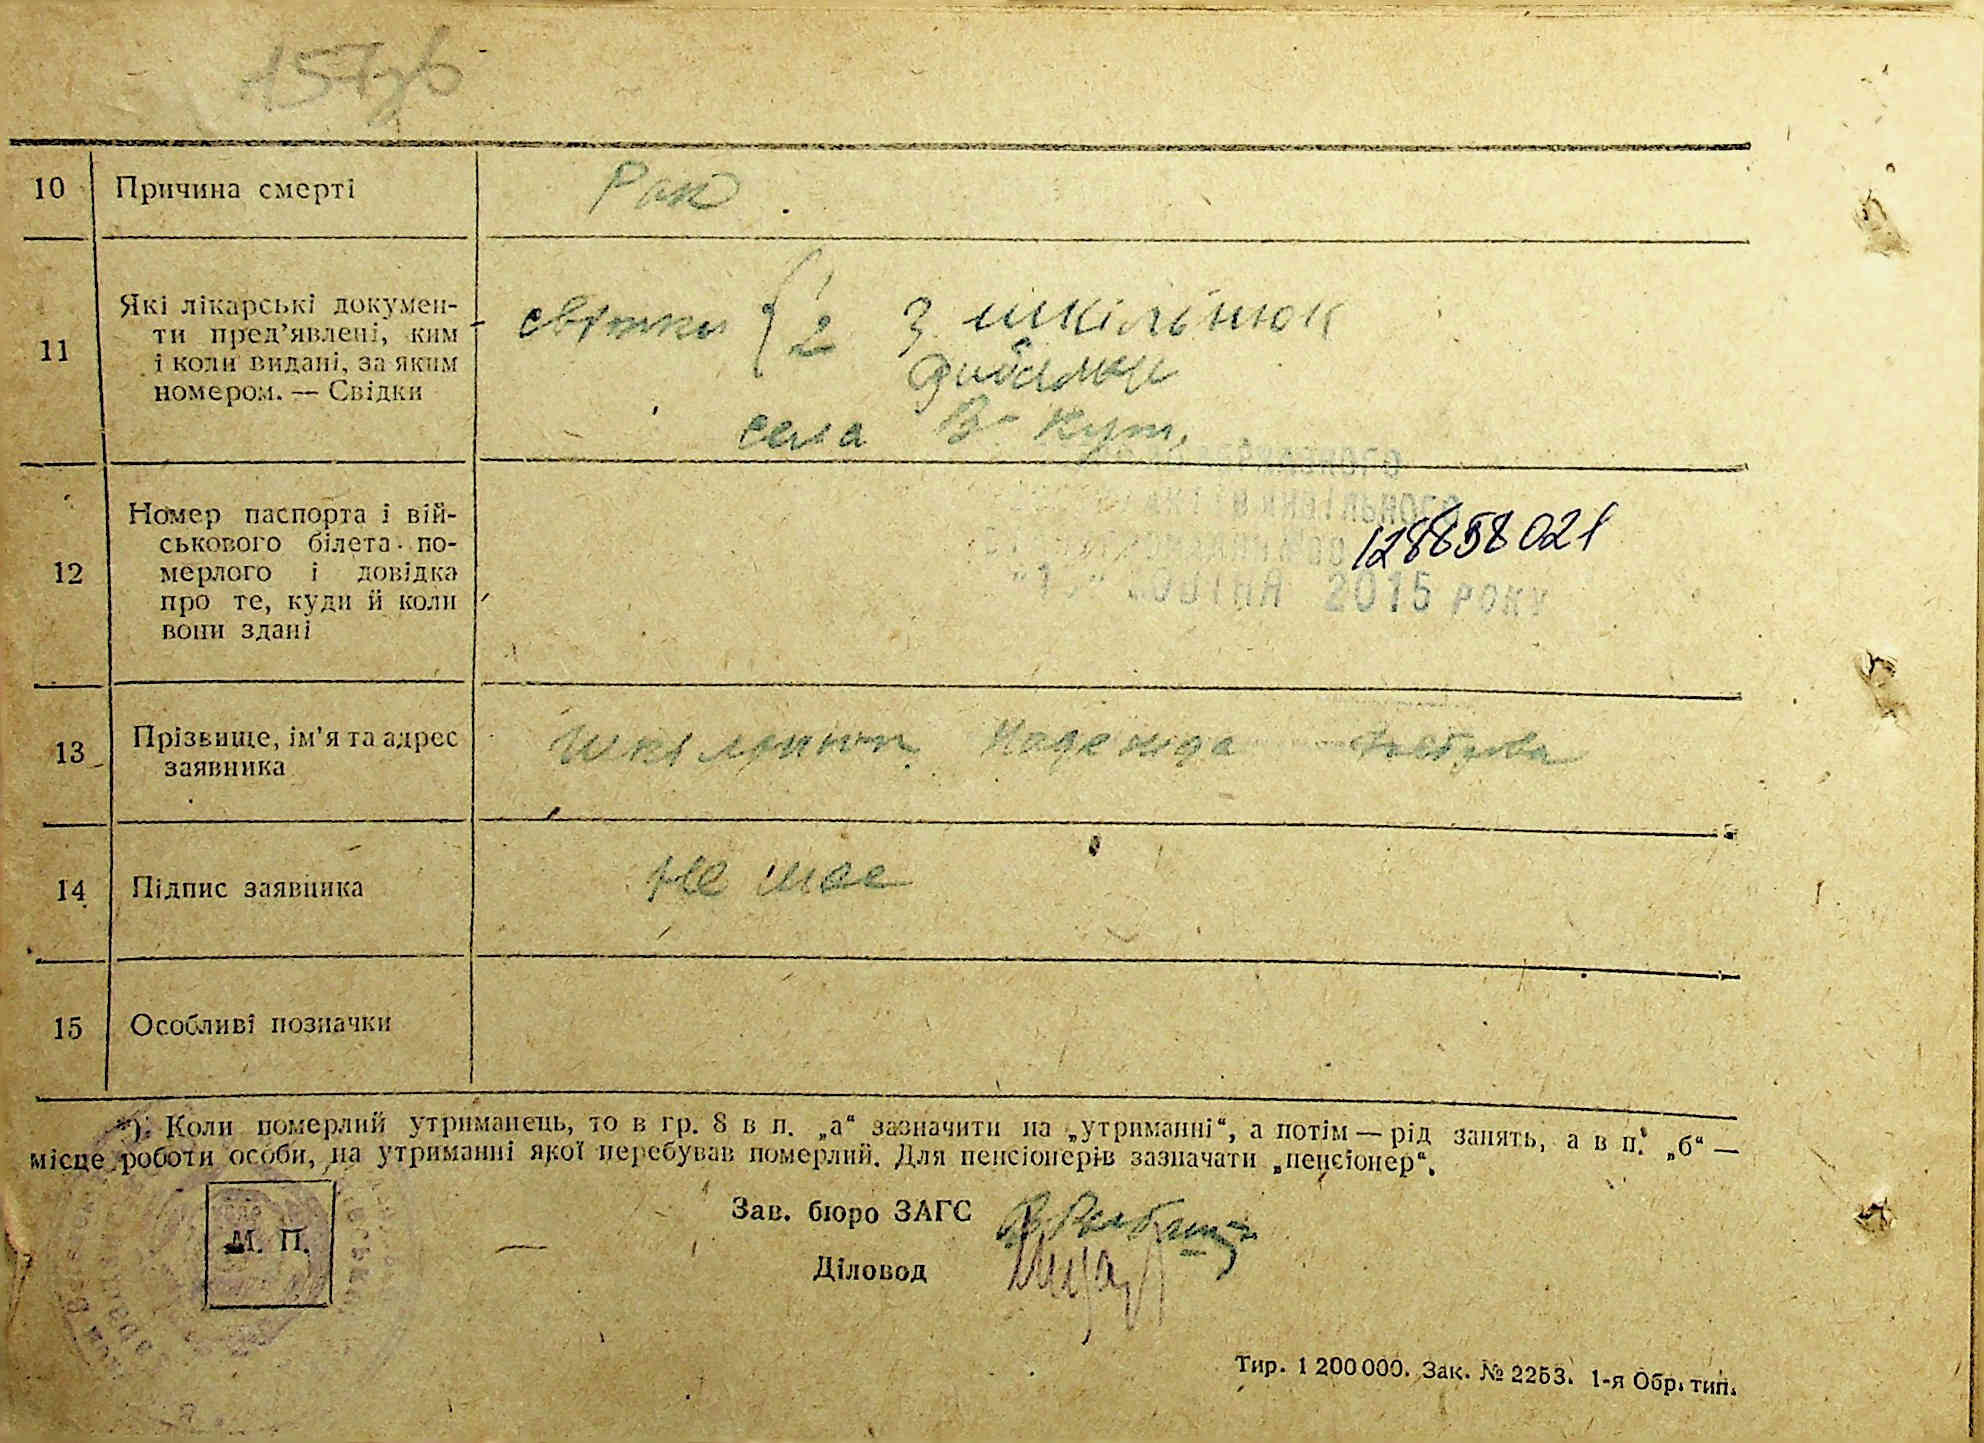 157зв
10 Причина смерті Рак.
11 Які лікарські документи пред’явлені, ким
і коли видані, за яким
номером. — Свідки
свідки { 1
2 З шкільнюк
села В-Кут.
12 Номер паспорта і вій-
ськового білета по-
мерлого і довідка
про те, куди й коли
вони здані
128858021
2015 РОКУ
13 Прізвище, ім’я та адрес
заявника
Шкілнюк Надежда
14 Підпис заявника Не має
15 Особливі позначки
*) Коли померлий утриманець, то в гр. 8 в п. „а“ зазначити на „утриманні“, а потім — рід занять, а в п. „б“ —
місце роботи особи, на утриманні якої перебував померлий. Для пенсіонерів зазначати „пенсіонер“.
М. П.
Зав. бюро ЗАГС
Діловод
Тир. 1 200 000. Зак. № 2253. 1-я Обр. тип.